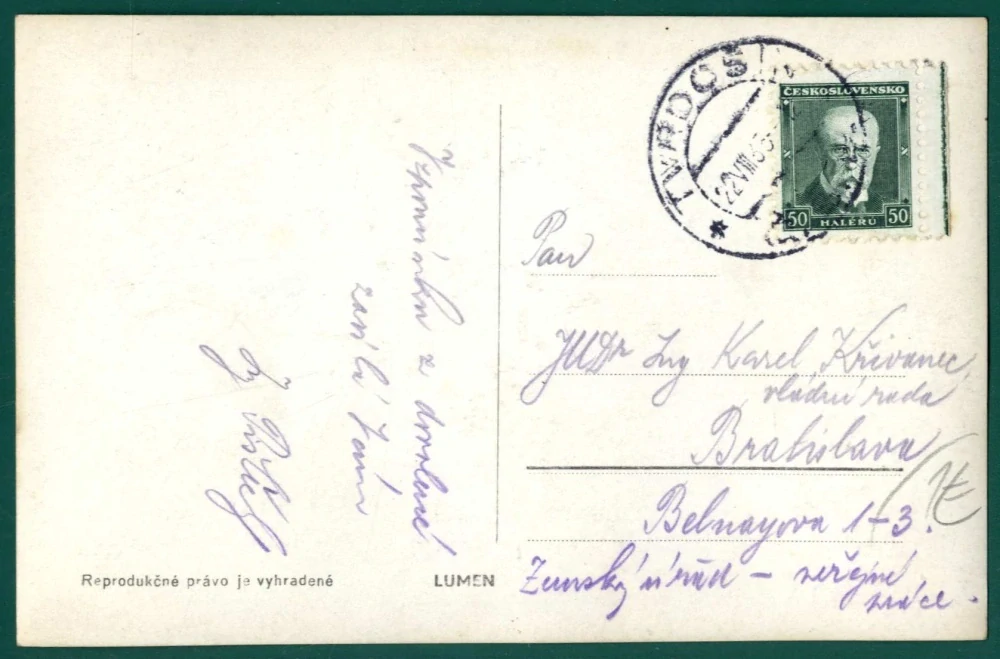 Vzpomínku z dovolené
zasílá Vám
Ing
Reprodukčné právo je vyhradené
LUMEN
TVRDOŠÍN
22 VIII 35
*
ČESKOSLOVENSKO
50 HALÉŘŮ 50
Pan
JUDr Ing Karel Křivanec,
vládní rada
Bratislava
Belnayova 1-3.
Zemský úřad – veřejné
práce.